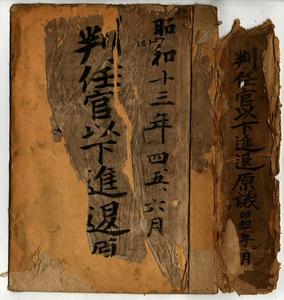 昭和十三年四、五、六月
判任官以下進退原
判任官以下進退原議 昭和 年 月